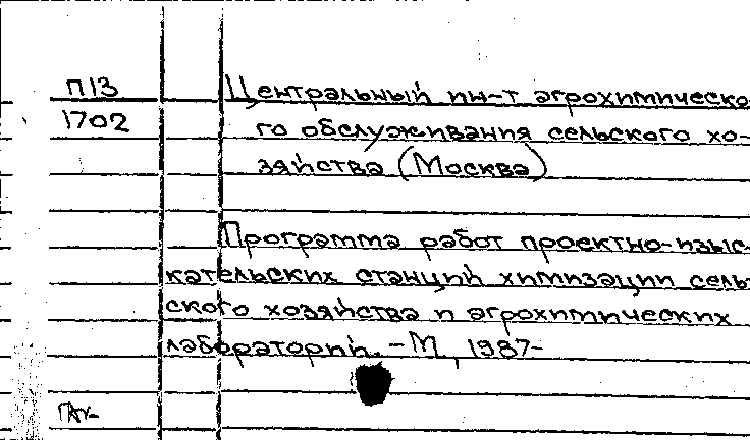 П13
1702
Центральный ин-т агрохимическо-
го обслуживания сельского хо-
зяйства (Москва)
Программа работ проектно-изыс-
кательских станций химизации сель-
ского хозяйства и агрохимических
лабораторий. – М, 1987-